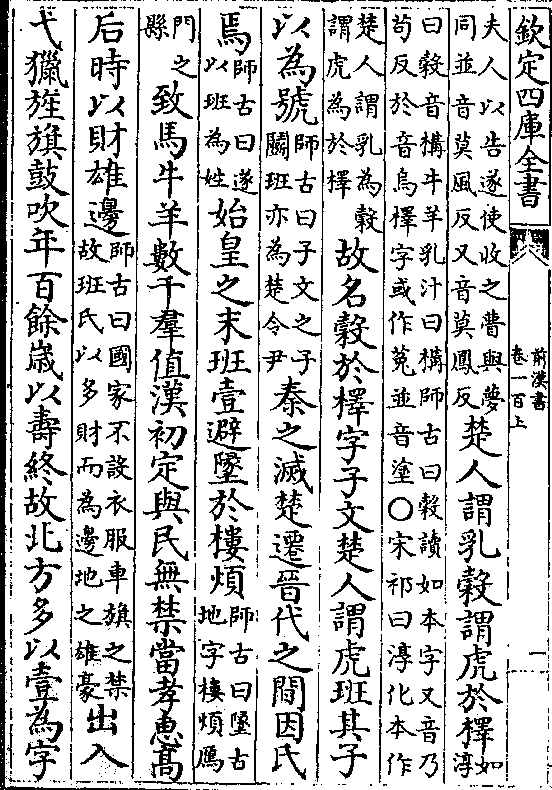 欽定四庫全書
前漢書
卷一百上
一
夫人以告遂使收之瞢與夢同並音莫風反又音莫鳳反楚人謂乳穀謂虎於檡如淳
曰穀音構牛羊乳汁曰構師古曰穀讀如本字又音乃苟反於音烏檡字或作莵並音塗〇宋祁曰淳化本作
楚人謂乳為穀謂虎為於檡故名穀於檡字子文楚人謂虎班其子
以為號師古曰子文之子鬭班亦為楚令尹秦之滅楚遷晉代之間因氏
焉師古曰遂以班為姓始皇之末班壹避墬於樓煩師古曰墬古地字樓煩鴈
門之縣致馬牛羊數千羣值漢初定與民無禁當孝惠髙
后時以財雄邊師古曰國家不設衣服車旗之禁故班氏以多財而為邊地之雄豪出入
弋獵旌旗鼓吹年百餘歲以壽終故北方多以壹為字